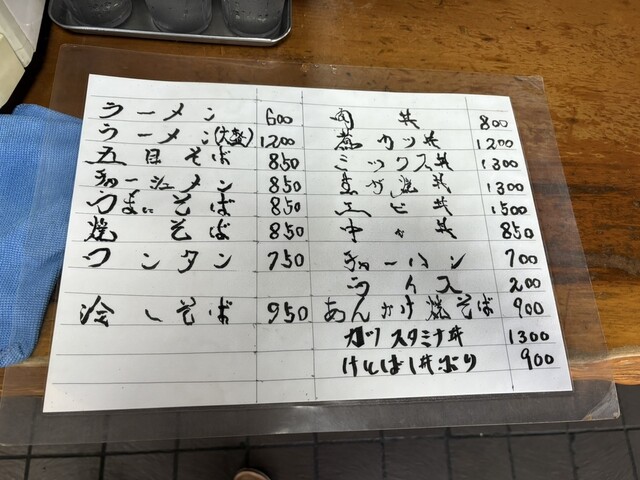 ラーメン 600
ラーメン(大盛) 1200
五目そば 850
チャーシューメン 850
うまにそば 850
焼そば 850
ワンタン 750
冷しそば 950
肉丼 800
カツ丼 1200
ミックス丼 1300
丼 1300
エビ丼 1500
中華丼 850
チャーハン 700
ライス 200
あんかけ焼そば 900
ガツスタミナ丼 1300
900